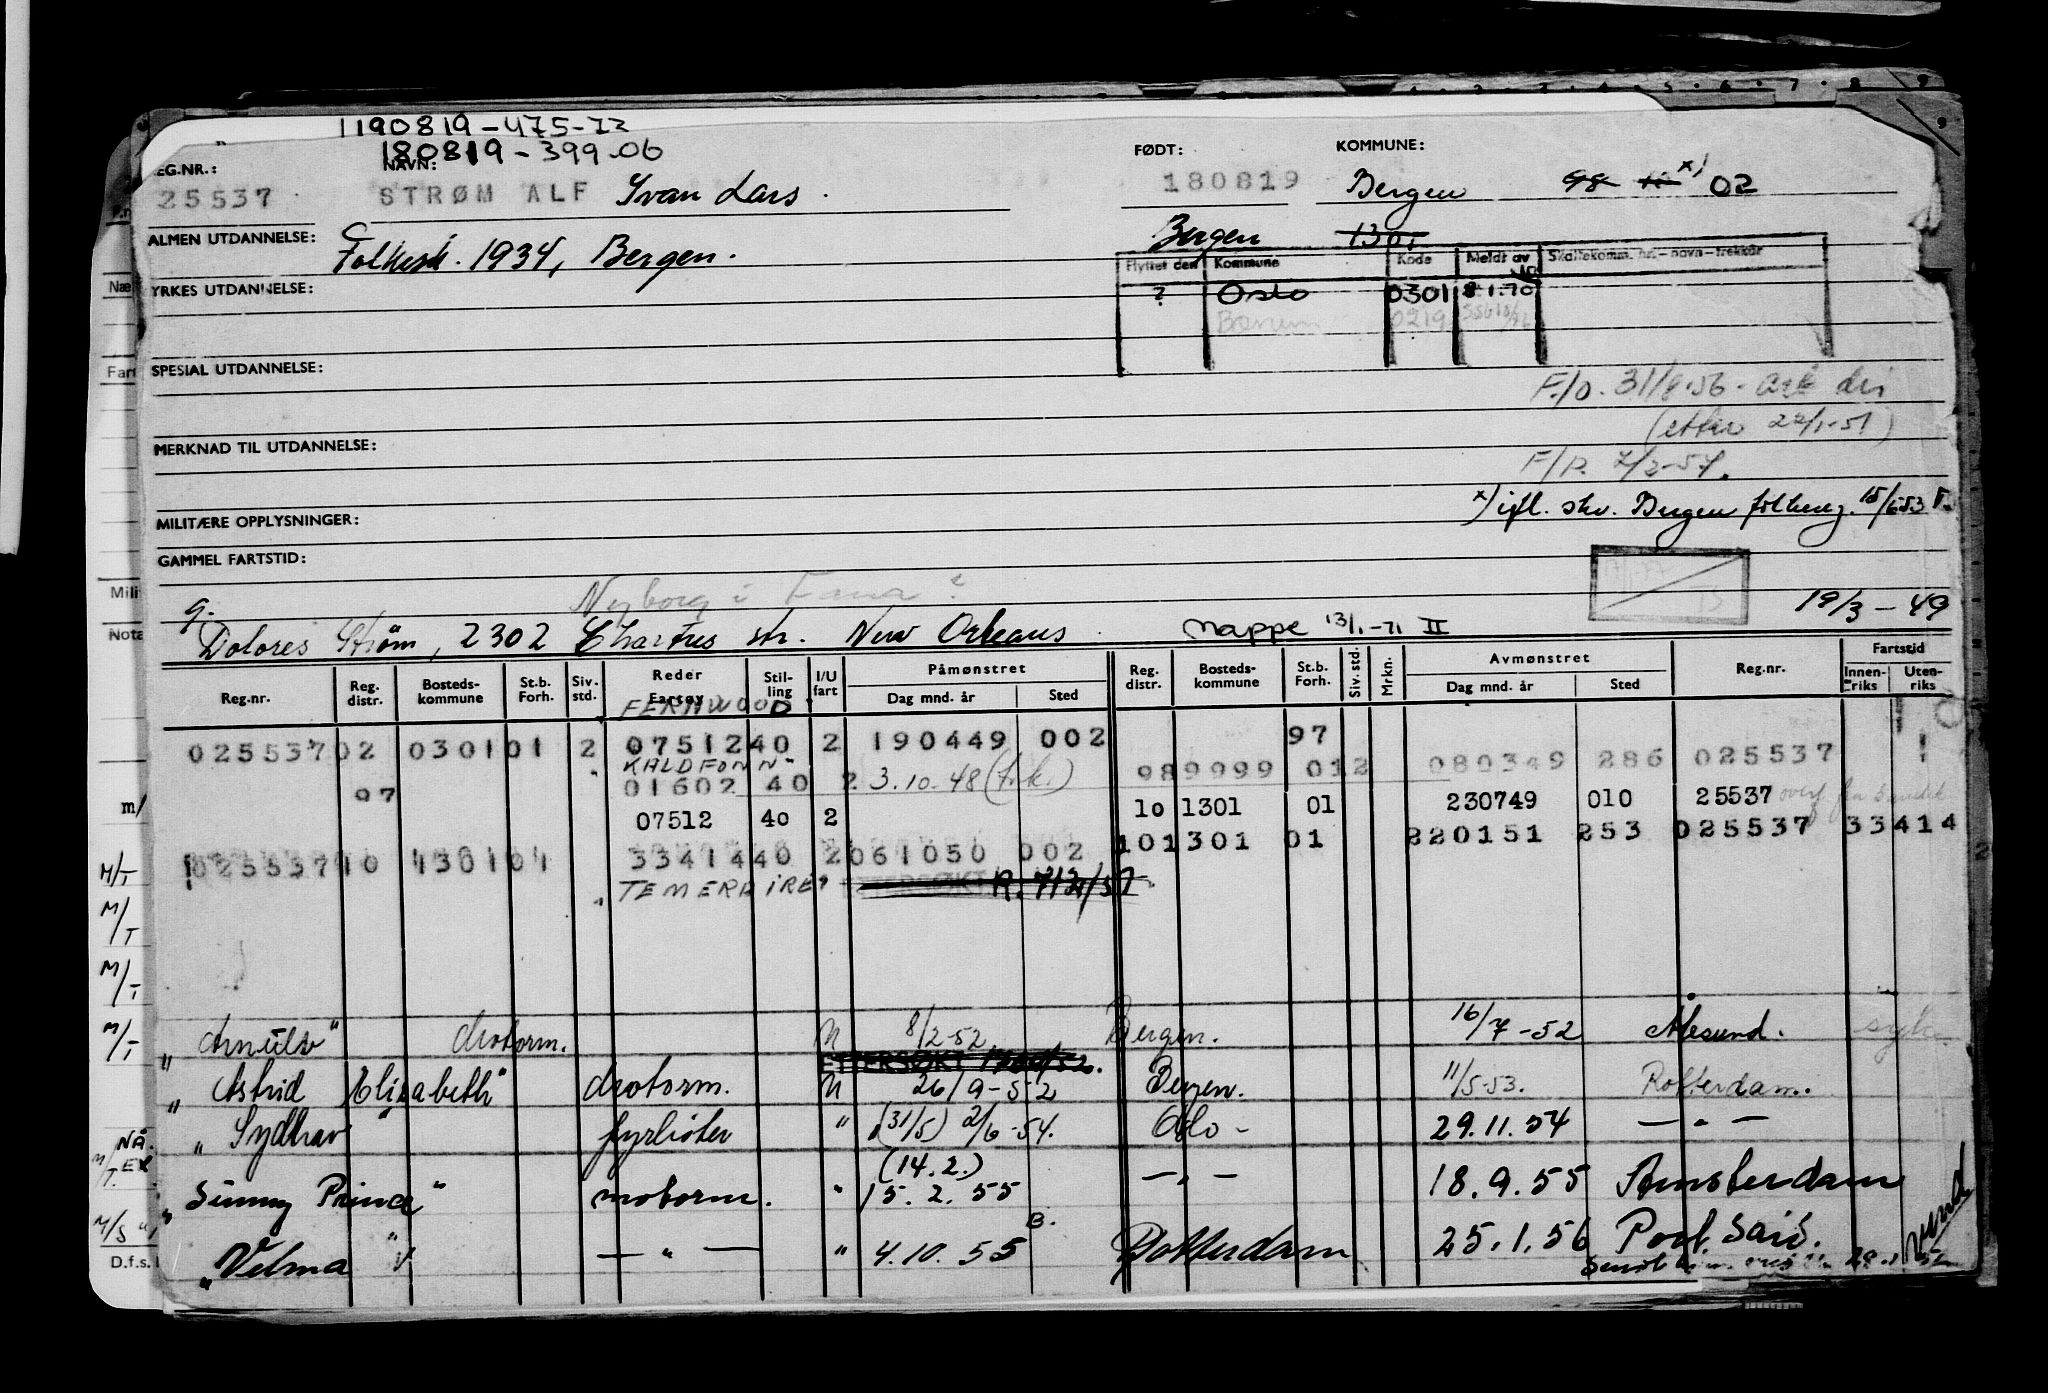 1190819-475-72
180819-399.06
REG.NR.: NAVN: FØDT: KOMMUNE:
25537 STRØM ALF Yvan Lars. 180819 Bergen x) 02
ALMEN UTDANNELSE: Folkesk. 1934, Bergen. Bergen 1301
Flyttet den Kommune Kode Meldt av Skattekomm. nr.-navn-trekkår
YRKES UTDANNELSE: ? Oslo 0301 8 1.70
Bærum 0219
SPESIAL UTDANNELSE:
F/O. 31/8-56. ark
(etter 22/1-51)
MERKNAD TIL UTDANNELSE:
F/R. 7/2-57.
x) ifl. skv. Bergen folkereg. 15/6-53
MILITÆRE OPPLYSNINGER:
GAMMEL FARTSTID:
Nyborg i Fana?
19/3-49
g. Dolores Strøm, 2302 Chartres str. New Orleans. Mappe 13/1-71 II
Reg.nr. Reg. distr. Bosteds-kommune St.b. Forh. Siv. std. Reder Fartøy Stil-ling I/U fart Påmønstret Dag mnd. år Sted Reg. distr. Bosteds-kommune St.b. Forh. Siv. std. Mrkn. Avmønstret Dag mnd. år Sted Reg.nr. Fartstid Innen-riks Uten-riks
"FERNWOOD"
025537 02 0301 01 2 07512 40 2 190449 002 97
"KALDFONN"
989999 012 080349 286 025537
97 01602 40 2 3.10.48
07512 40 2 10 1301 01 230749 010 25537
10 1301 01 220151 253 025537 33414
025537 10 1301 01 33414 40 2 061050 002
"TEMERAIRE" ETTERSØKT R. 7/2/57
"Arnulv" motorm. U 8/2-52 Bergen. 16/7-52 Ålesund. syk
ETTERSØKT
"Astrid Elizabeth" motorm. U 26/9-52 Bergen. 11/5-53. Rotterdam.
"Sydhav" fyrbøter " (31/5) 2/6-54. Oslo - 29.11.54 — " —
(14.2.)
"Sunny Prince" motorm. " 15.2.55 — " — 18.9.55 Amsterdam
"Velma" — " — " 4.10.55 Rotterdam 25.1.56 Port Said.
M/T
M/T
M/T
M/T
M/S
D.f.s.